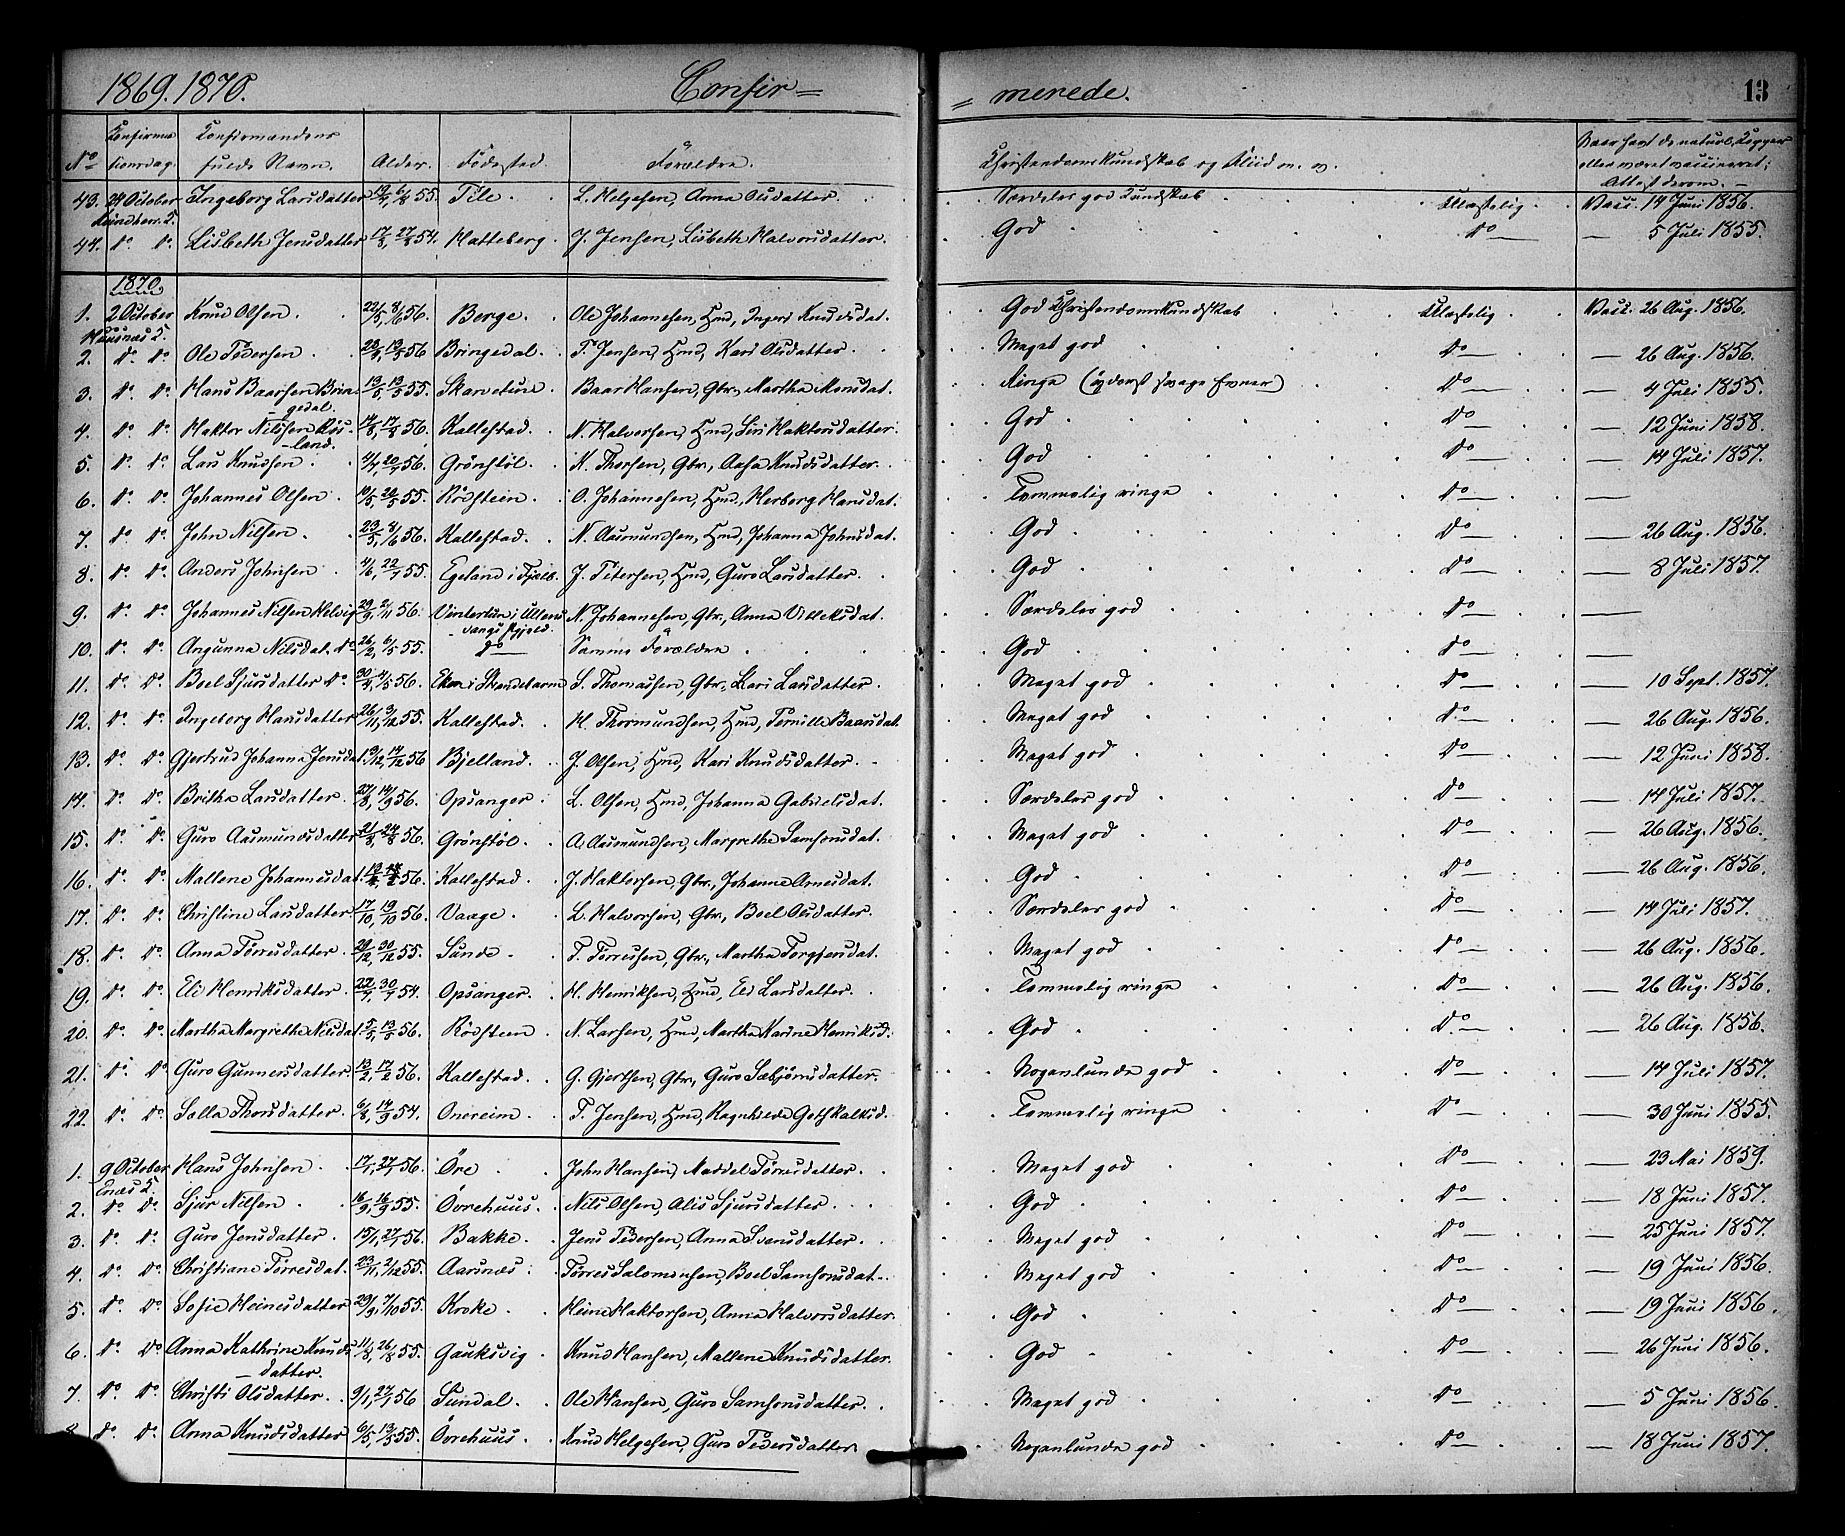 1869. 1870. Confir= =merede. 13
No Confirma= tionsdag. Confirmandens fulde Navn. Alder. Födested. Forældre. Christendomskundskab og Fliid m. v. Naar havt de naturl. Kopper eller været vaccineret; Attest derom.
43. 24 October Ingeborg Larsdatter 6/8 55. Tile. L. Helgesen, Anna Olsdatter. Særdeles god Kundskab Vacc. 14 Juni 1856.
44. do do Lisbeth Jensdatter 17/8, 27/8 54. Hatteberg. J. Jensen, Lisbeth Halvorsdatter. God do — 5 Juli 1855.
1870
1. 2 October Knud Olsen. 22/5, 8/6 56. Berge. Ole Johannesen, Hmd, Ingeri Knudsdat. God Christendomskundskab Vacc. 26 Aug. 1856.
2. do do Ole Pedersen 13/5 56 Bringedal. P. Jensen, Hmd, Kari Olsdatter. Meget god do — 26 Aug. 1856.
3. do do Hans Baarsen Brin= gedal. 13/5 55. Skarvetun. Baar Hansen, Gbr., Martha Monsdat. Ringe (yderst svage Evner) do — 4 Juli 1855.
4. do do Haktor Nilsen Røs= land. 14/8, 17/8 56. Kallestad. N. Halvorsen, Hmd, Siri Haktorsdatter. God do — 12 Juni 1858.
5. do do Lars Knudsen. 56. Grönstöl. K. Thorsen, Gbr., Aasa Knudsdatter. God do — 14 Juli 1857.
6. do do Johannes Olsen. 10/5, 20/5 55. Rödstein. O. Johannesen, Hmd, Herborg Hansdat. Temmelig ringe do —
7. do do John Nilsen. 23/5, 8/6 56. Kallestad. N. Aamundsen, Hmd, Johanna Johnsdat. God do — 26 Aug. 1856.
8. do do Anders Johnsen 55. Egeland i Fjelb. J. Petersen, Hmd, Guro Larsdatter. God do — 8 Juli 1857.
9. do do Johannes Nilsen Helvig 29/9, 2/11 56. Vintertun i Ullens= vangs Pgjeld. N. Johannesen, Gbr., Anna Villiksdat. Særdeles god do —
10. do do Angunna Nilsdat. do 26/2, 6/5 55. do Samme Forældre. God do —
11. do do Boel Sjursdatter do 56. Eken i Strandebarm S. Thomassen, Gbr., Kari Larsdatter. Meget god do — 10 Sept. 1857.
12. do do Ingeborg Hansdatter 26/11, 3/12 55. Kallestad. H. Thormundsen, Hmd, Pernille Baarsdat. Meget god do — 26 Aug. 1856.
13. do do Gjertrud Johanna Jensdat. 14/12 56 Bjelland. J. Olsen, Hmd, Kari Knudsdatter. Meget god do — 12 Juni 1858.
14. do do Britha Larsdatter. 27/8, 14/9 56. Opsanger. L. Olsen, Hmd, Johanna Gabrielsdat. Særdeles god do — 14 Juli 1857.
15. do do Guro Aamundsdatter 24/8 56. Grönstöl. A. Aamundsen, Margrethe Samsonsdat. Meget god do — 26 Aug. 1856.
16. do do Mallene Johannesdat. 56. Kallestad. J. Haktorsen, Gbr., Johanne Arnesdat. God do — 26 Aug. 1856.
17. do do Christine Larsdatter 17/10, 19/10 56. Vaage. L. Halvorsen, Gbr., Boel Olsdatter. Særdeles god do — 14 Juli 1857.
18. do do Anna Tørresdatter 20/12, 30/12 55. Sunde. T. Tørresen, Gbr., Martha Torgjersdat. Meget god do — 26 Aug. 1856.
19. do do Eli Henriksdatter. 22/7, 30/7 54. Opsanger. H. Henriksen, Hmd, Eli Larsdatter. Temmelig ringe do — 26 Aug. 1856.
20. do do Martha Margrethe Nilsdat. 5/5, 13/5 56. Rödsteen. N. Larsen, Hmd, Martha Karine Henriksd. God do — 26 Aug. 1856.
21. do do Guro Gunnersdatter. 13/2, 17/2 56. Kallestad. G. Gjertsen, Gbr., Guro Sæbjørnsdatter. Nogenlunde god do — 14 Juli 1857.
22. do do Salla Thorsdatter. 6/8, 14/9 54. Onereim. T. Jensen, Hmd, Ragnhilda Gothskalksd. Temmelig ringe do — 30 Juni 1855.
1. 9 October Hans Johnsen. 17/1, 27/1 56. Öre John Hansen, Maddel Tørresdatter. Meget god do — 23 Mai 1859.
Enæs K.
2. do do Sjur Nilsen 16/9, 16/9 55. Övrehuus. Nils Olsen, Alis Sjursdatter. God do — 18 Juni 1857.
3. do do Guro Jensdatter. 15/1, 27/1 56. Bakke. Jens Pedersen, Anna Svensdatter. Meget god do — 25 Juni 1857.
4. do do Christiane Tørresdat. 23/11, 2/12 55. Aarsnæs. Tørres Salomonsen, Boel Samsonsdat. Meget god do — 19 Juni 1856.
5. do do Sofie Heinesdatter 29/9, 7/10 55. Kroke. Heine Haktorsen, Anna Halvorsdatter. God do — 19 Juni 1856.
6. do do Anna Kathrine Knuds= datter. 11/8, 26/8 55. Gauksvig Knud Hansen, Mallene Knudsdatter. God do — 26 Juni 1856.
7. do do Christi Olsdatter. 9/1, 27/1 56 Sundal. Ole Hansen, Guro Samsonsdatter. Meget god do — 5 Juni 1856
8. do do Anna Knudsdatter 6/5, 13/5 55. Övrehuus. Knud Helgesen, Guro Pedersdatter Nogenlunde god do — 18 Juni 1857.